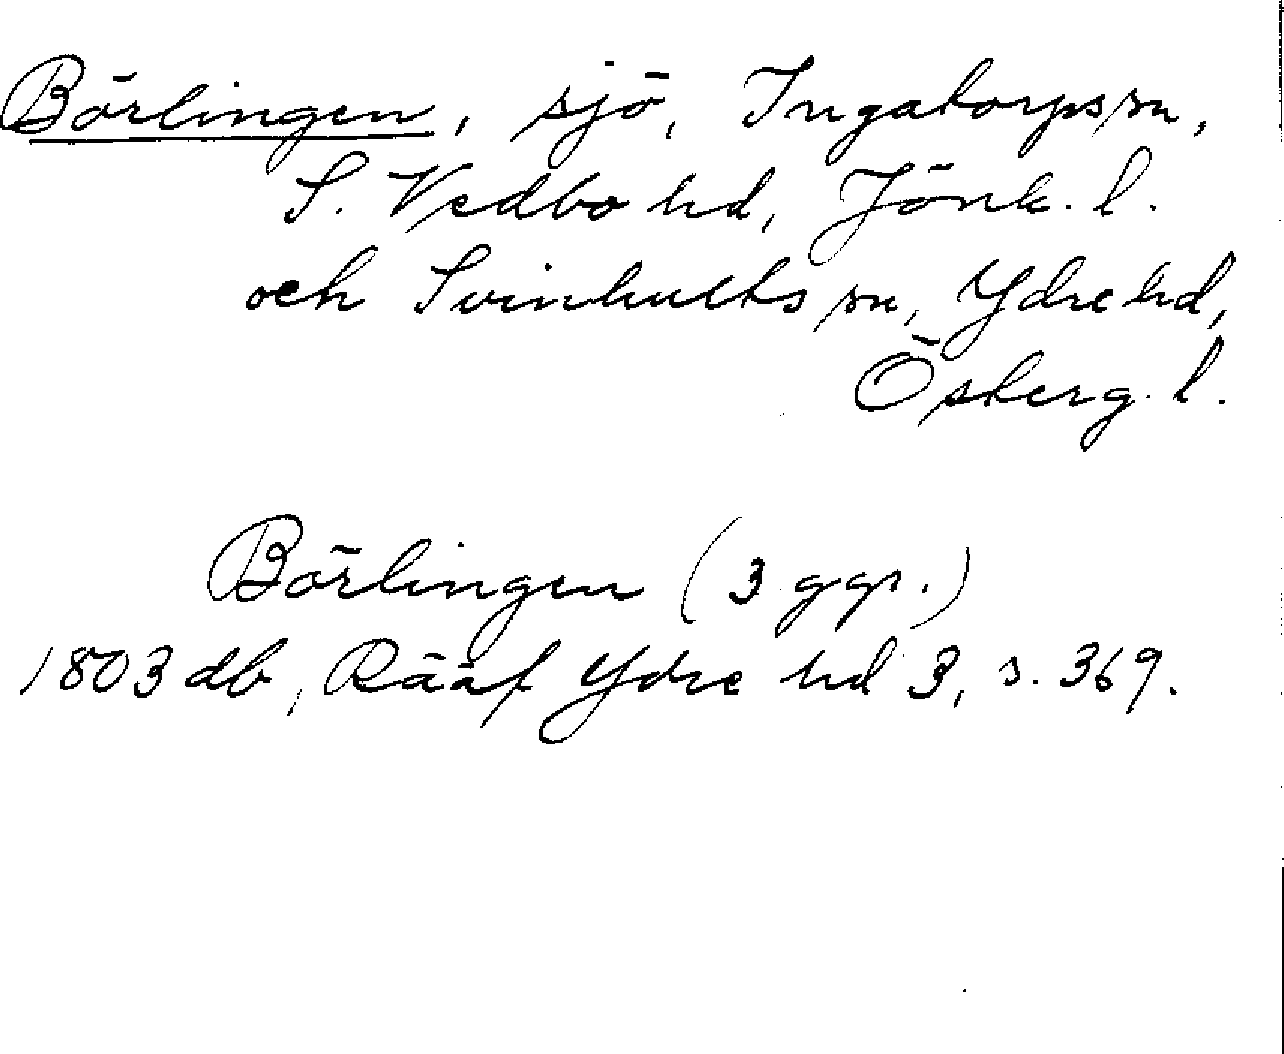 Börlingen, sjö, Ingatorps sn,
S. Vedbo hd, Jönk. l.
och Svinhults sn, Ydre hd,
Österg. l.
Börlingen (3 ggr.)
1803 db, Rääf Ydre hd 3, s. 369.